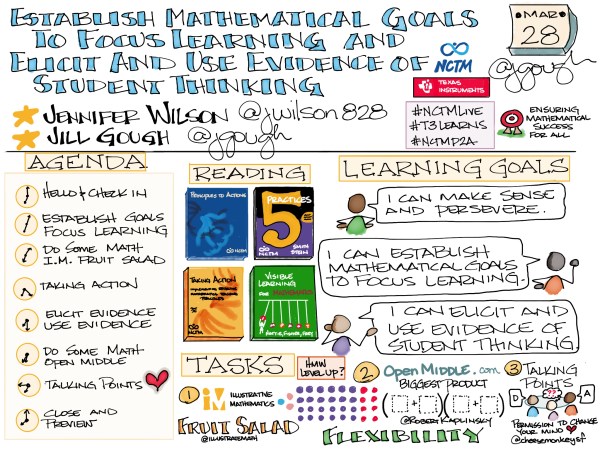 Establish Mathematical Goals
To Focus Learning and
Elicit And Use Evidence of
Student Thinking
MAR
28
@jgough
NCTM
Texas
Instruments
Jennifer Wilson @jwilson828
Jill Gough @jgough
#NCTMLive
#T3Learns
#NCTMP2A
Ensuring
Mathematical
Success
for All
Agenda
Hello & Check in
Establish Goals
Focus Learning
Do Some Math
I.M. Fruit Salad
Taking Action
Elicit Evidence
Use Evidence
Do Some Math-
Open Middle
Talking Points
Close and
Preview
Reading
Principles to Actions
NCTM
5
Practices
NCTM
Smith
Stein
Taking Action
NCTM
Visible
Learning
for
Hattie, Fisher, Frey
Learning Goals
I can make sense
and persevere.
I can establish
mathematical goals
to focus learning.
I can elicit and
use evidence of
student thinking.
Tasks
HMW
Level up?
1
IM
Illustrative
Mathematics
Fruit Salad
@illustratemath
2
OpenMiddle.com
Biggest Product
@RobertKaplinsky
Flexibility
3
Talking
Points
D
???
A
Permission to change
your mind
@cheesemonkeysf